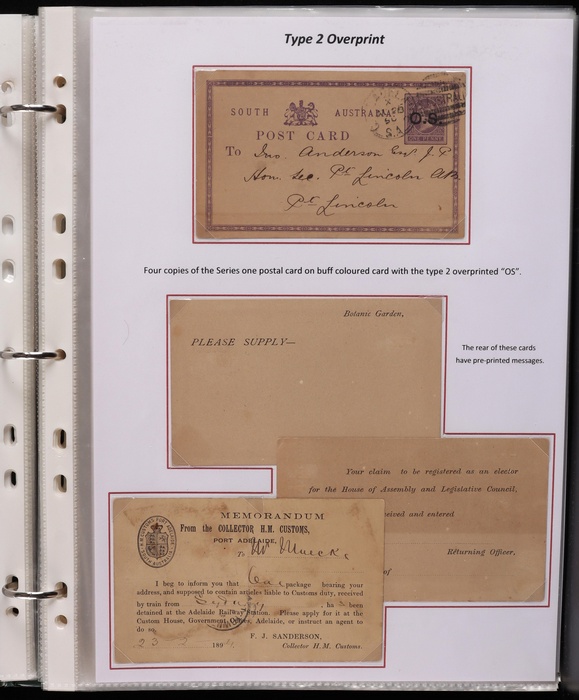 Type 2 Overprint
SOUTH AUSTRALIA
POST CARD
O.S.
ONE PENNY
To Jno. Anderson Esq J.P.
Hon. Sec. Pt Lincoln
Pt Lincoln
Four copies of the Series one postal card on buff coloured card with the type 2 overprinted “OS”.
Botanic Garden,
PLEASE SUPPLY—
The rear of these cards
have pre-printed messages.
Your claim to be registered as an elector
for the House of Assembly and Legislative Council,
ceived and entered
Returning Officer,
of
MEMORANDUM
From the COLLECTOR H.M. CUSTOMS,
PORT ADELAIDE,
To Mr Muecke
I beg to inform you that One package bearing your
address, and supposed to contain articles liable to Customs duty, received
by train from , has been
detained at the Adelaide Railway Station. Please apply for it at the
Custom House, Government Offices, Adelaide, or instruct an agent to
do so.
F. J. SANDERSON,
189 Collector H. M. Customs